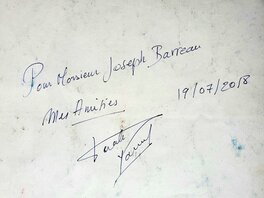 Pour Monsieur Joseph Barreau
Mes Amitiés
19/07/2018